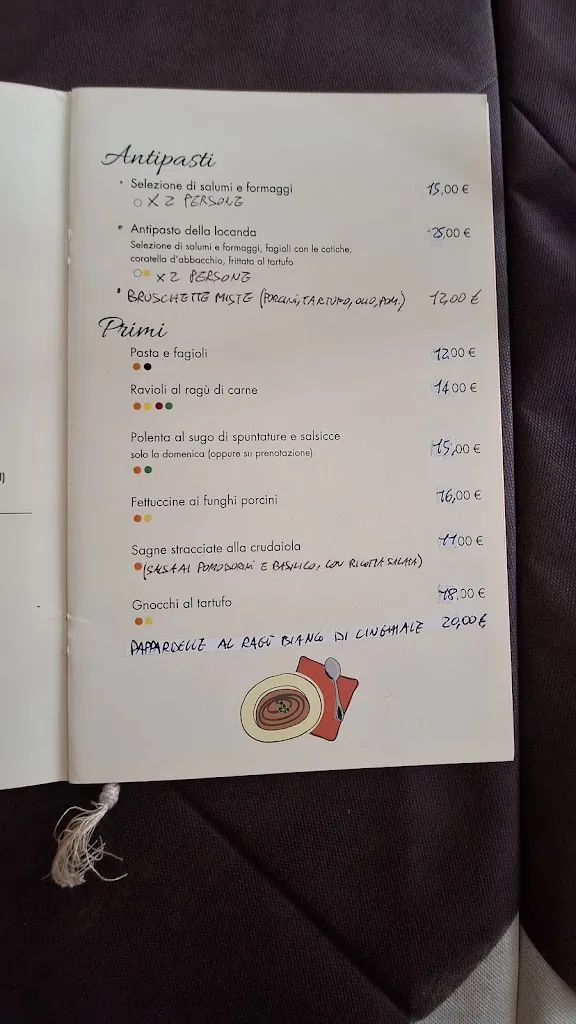 Antipasti
Selezione di salumi e formaggi 15,00 €
X 2 PERSONE
Antipasto della locanda 25,00 €
Selezione di salumi e formaggi, fagioli con le cotiche,
coratella d'abbacchio, frittata al tartufo
X 2 PERSONE
BRUSCHETTE MISTE (PORCINI, TARTUFO, OLIO, POM.) 12,00 €
Primi
Pasta e fagioli 12,00 €
Ravioli al ragù di carne 14,00 €
Polenta al sugo di spuntature e salsicce
solo la domenica (oppure su prenotazione) 15,00 €
Fettuccine ai funghi porcini 16,00 €
Sagne stracciate alla crudaiola 11,00 €
(SALSA AI POMODORINI E BASILICO, CON RICOTTA SALATA)
Gnocchi al tartufo 18,00 €
PAPPARDELLE AL RAGÙ BIANCO DI CINGHIALE 20,00 €